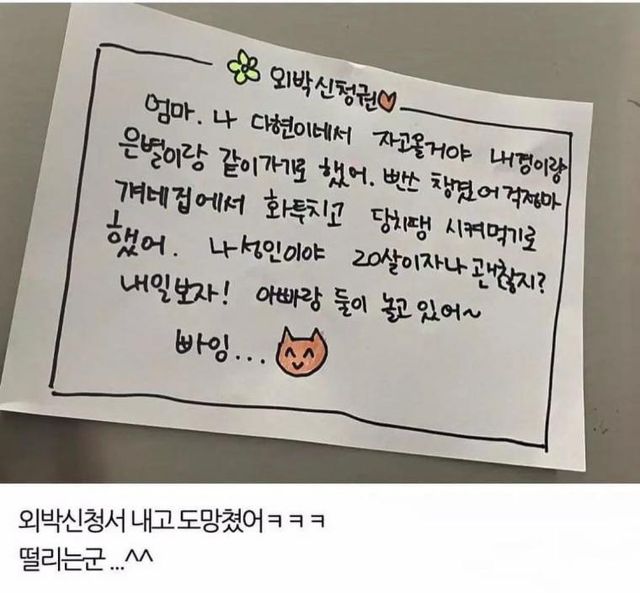 외박신청권
엄마. 나 다현이네서 자고올거야 내경이랑
은별이랑 같이가기로 했어. 빤쓰 챙겼어걱정마
겨네집에서 화투치고 당치땡 시켜먹기로
했어. 나성인이야 20살이자나괜찮지?
내일보자! 아빠랑 둘이 놀고있어~
빠잉...
외박신청서 내고 도망쳤어ㅋㅋㅋ
떨리는군...^^